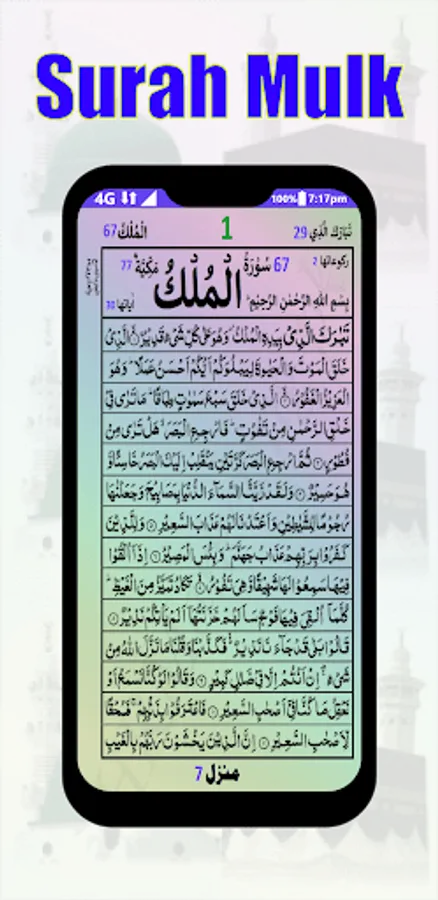 Surah Mulk
4G 100% 7:17pm
تَبَارَكَ الَّذِي 29 1 اَلْمُلْكُ 67
ركوعاتها 2 67 سُوْرَةُ الْمُلْكُ مَكِّيَّةٌ 77
بِسْمِ اللّٰهِ الرَّحْمٰنِ الرَّحِيْمِ اٰياتها 30
تَبٰرَكَ الَّذِيْ بِيَدِهِ الْمُلْكُ وَهُوَ عَلٰى كُلِّ شَيْءٍ قَدِيْرُ ۝ الَّذِيْ
خَلَقَ الْمَوْتَ وَالْحَيٰوةَ لِيَبْلُوَكُمْ اَيُّكُمْ اَحْسَنُ عَمَلًا وَهُوَ
الْعَزِيْزُ الْغَفُوْرُ ۝ الَّذِيْ خَلَقَ سَبْعَ سَمٰوٰتٍ طِبَاقًا مَا تَرٰى فِيْ
خَلْقِ الرَّحْمٰنِ مِنْ تَفٰوُتٍ فَارْجِعِ الْبَصَرَ هَلْ تَرٰى مِنْ
فُطُوْرٍ ۝ ثُمَّ ارْجِعِ الْبَصَرَ كَرَّتَيْنِ يَنْقَلِبْ اِلَيْكَ الْبَصَرُ خَاسِئًا وَّ
هُوَ حَسِيْرٌ ۝ وَلَقَدْ زَيَّنَّا السَّمَآءَ الدُّنْيَا بِمَصَابِيْحَ وَجَعَلْنٰهَا
رُجُوْمًا لِّلشَّيٰطِيْنِ وَاَعْتَدْنَا لَهُمْ عَذَابَ السَّعِيْرِ ۝ وَلِلَّذِيْنَ
كَفَرُوْا بِرَبِّهِمْ عَذَابُ جَهَنَّمَ وَبِئْسَ الْمَصِيْرُ ۝ اِذَآ اُلْقُوْا
فِيْهَا سَمِعُوْا لَهَا شَهِيْقًا وَّهِيَ تَفُوْرُ ۝ تَكَادُ تَمَيَّزُ مِنَ الْغَيْظِ
كُلَّمَآ اُلْقِيَ فِيْهَا فَوْجٌ سَاَلَهُمْ خَزَنَتُهَآ اَلَمْ يَاْتِكُمْ نَذِيْرٌ ۝
قَالُوْا بَلٰى قَدْ جَآءَنَا نَذِيْرٌ فَكَذَّبْنَا وَقُلْنَا مَا نَزَّلَ اللّٰهُ مِنْ
شَيْءٍ اِنْ اَنْتُمْ اِلَّا فِيْ ضَلٰلٍ كَبِيْرٍ ۝ وَقَالُوْا لَوْ كُنَّا نَسْمَعُ اَوْ
نَعْقِلُ مَا كُنَّا فِيْٓ اَصْحٰبِ السَّعِيْرِ ۝ فَاعْتَرَفُوْا بِذَنْۢبِهِمْ فَسُحْقًا
لِّاَصْحٰبِ السَّعِيْرِ ۝ اِنَّ الَّذِيْنَ يَخْشَوْنَ رَبَّهُمْ بِالْغَيْبِ
منزل 7